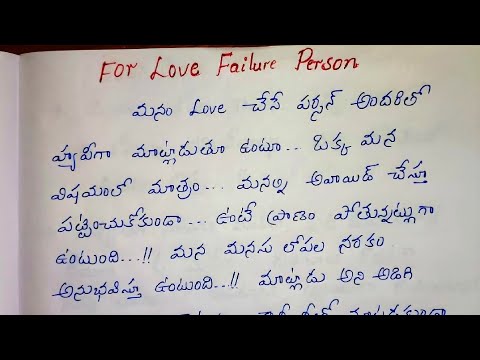 For Love Failure Person
మనం Love చేసే పర్సన్ అందరితో
హ్యాపీగా మాట్లాడుతూ ఉంటూ... ఒక్క మన
విషయంలో మాత్రం... మనల్ని అవాయిడ్ చేస్తూ
పట్టించుకోకుండా... ఉంటే ప్రాణం పోతున్నట్లుగా
ఉంటుంది...!! మన మనసు లోపల నరకం
అనుభవిస్తూ ఉంటుంది...!! మాట్లాడు అని అడిగి